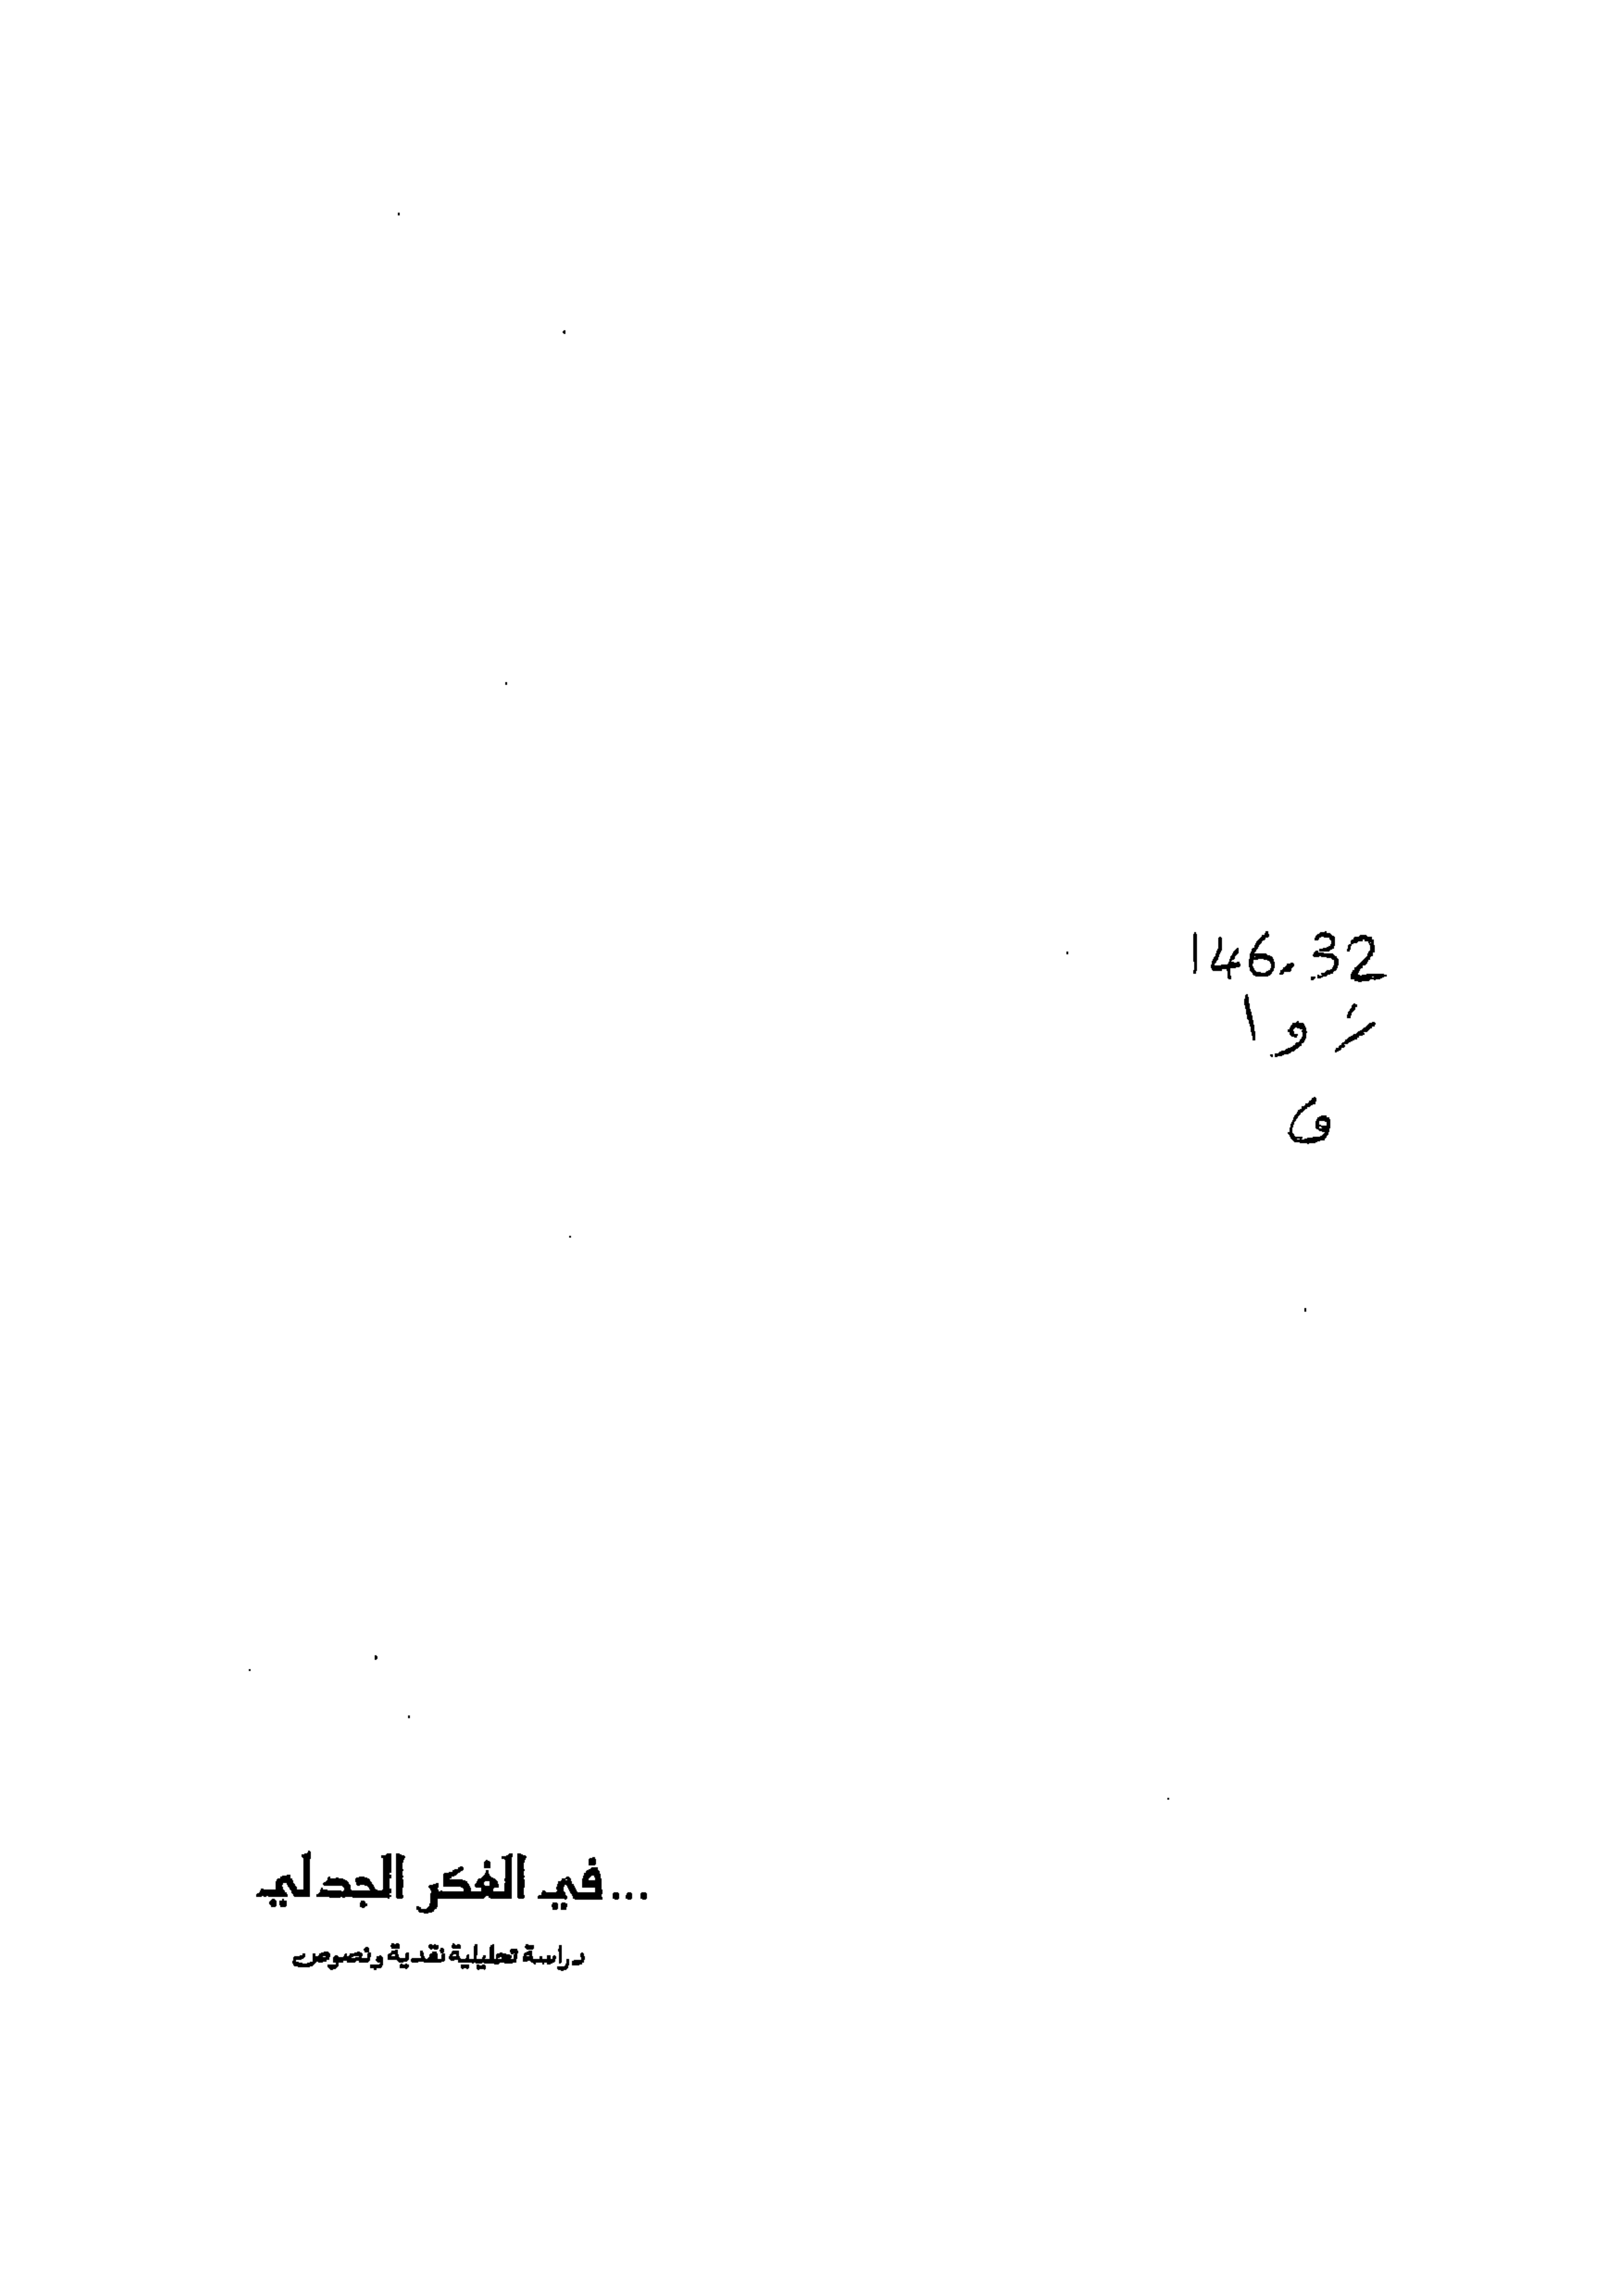 146.32
ز و ا
ف
...في الفكر الجدلي
دراسة تحليلية نقدية ونصوص